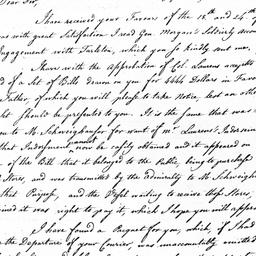 Dear Sir,
I have received your Favours of the 18th and 24th
was with great Satisfaction I read Gen. Morgan's Soldierly acco
Engagement with Tarleton, which you so kindly sent me,
I have with the Approbation of Col. Laurens accepted
Set of Bills drawn on you for 4444 Dollars in Favr
Father, of which you will please to take Notice, lest an other
Set should be presented to you. It is the same that was
to Mr Schweighauser for want of Mr Laurens's Indorsem
that Indorsement cannot now be safely obtained and it appeared on
of the Bill that it belonged to the Public, being to purchase
Stores, and was transmitted by the Admiralty to Mr Schweigh
that Purpose, and the Vessel waiting to receive those Stores,
it was right to pay it, which I hope you will approve
I have found a Paquet for you, which, if I had
the Departure of your Courier, was unaccountably omitted